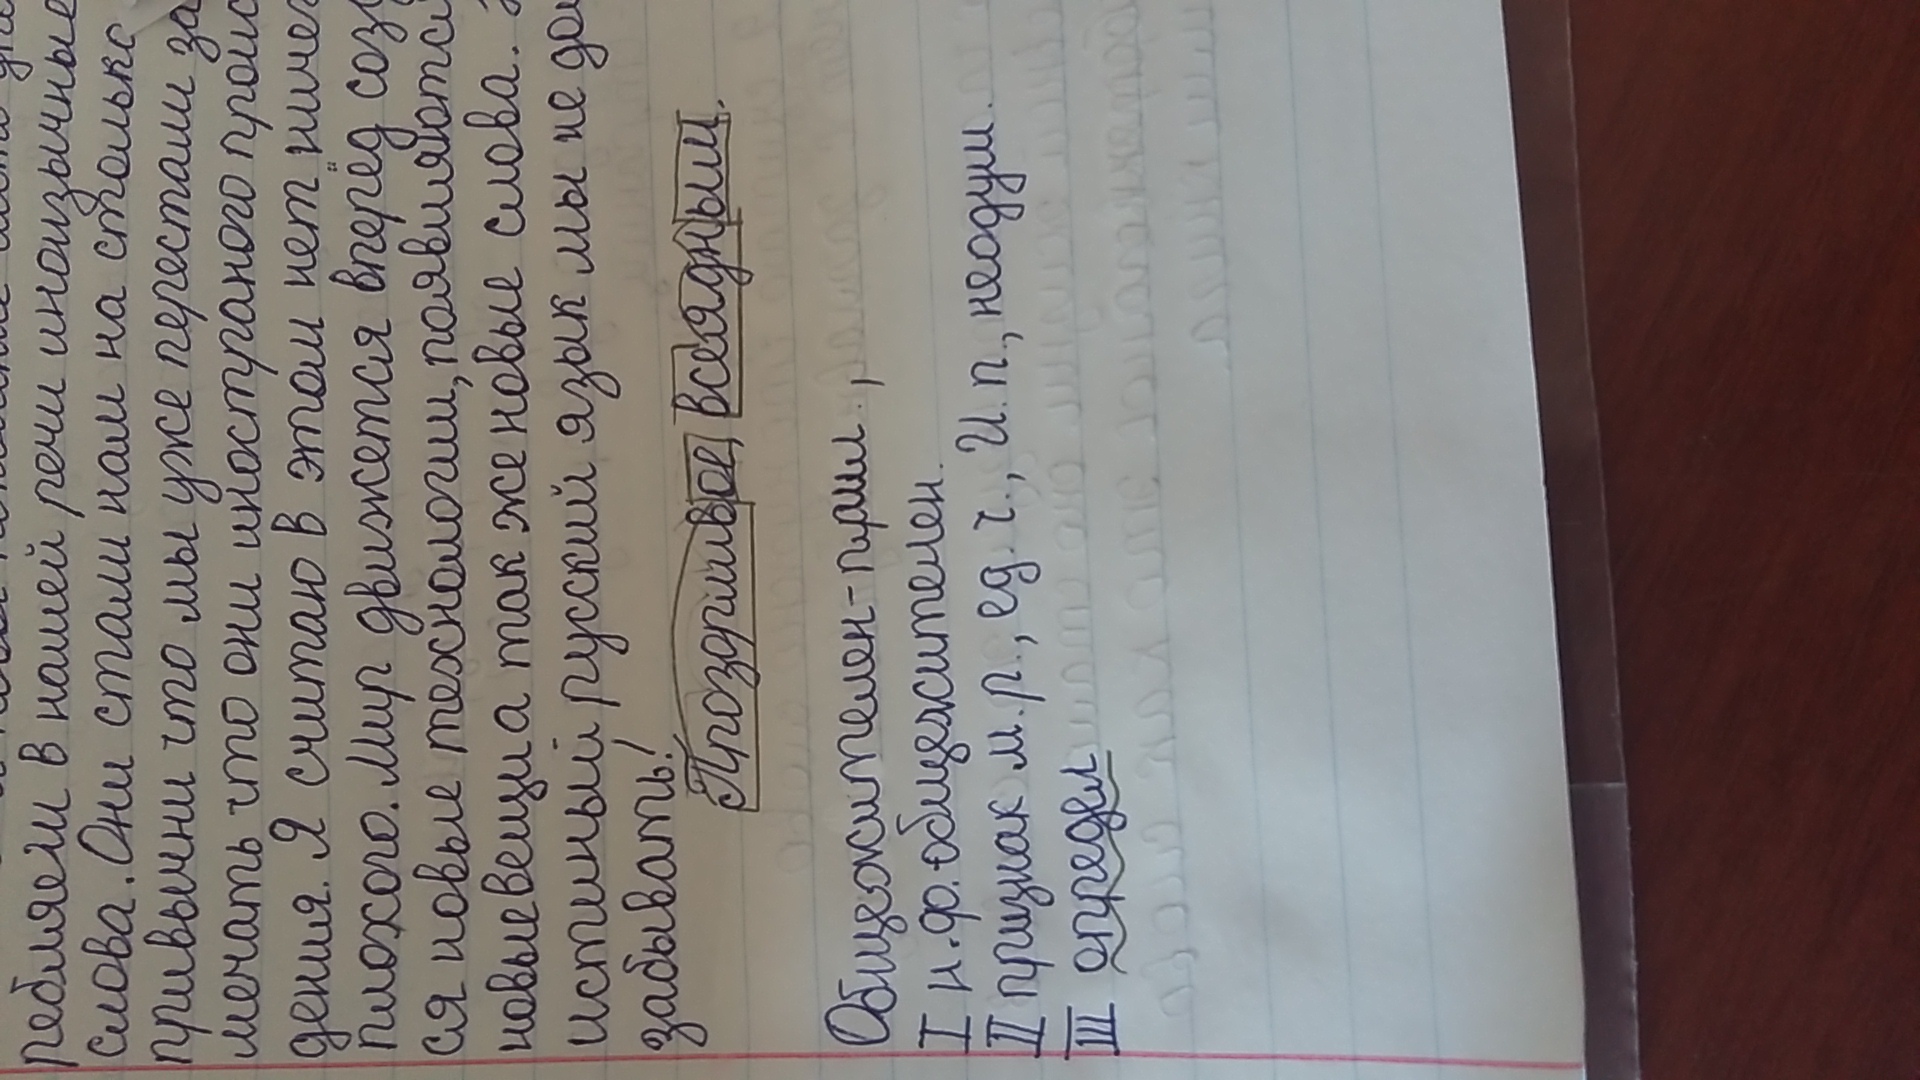 ребляем в нашей речи иноязычные
слова. Они стали нам на столько
привычни что мы уже перестали за
мечать что они иностраного проис
дения. Я считаю в этом нет ничег
плохого. Мир движется вперёд созд
ся новые технологии, появиляются
новые вещи а так же новые слова.
истиный руский язык мы не до
забывать!
Прозорливое, всеядным.
Общежителен-прил.,
I н.ф. общежителен.
II признак м.р., ед.ч., И.п., неодуш.
III опредл